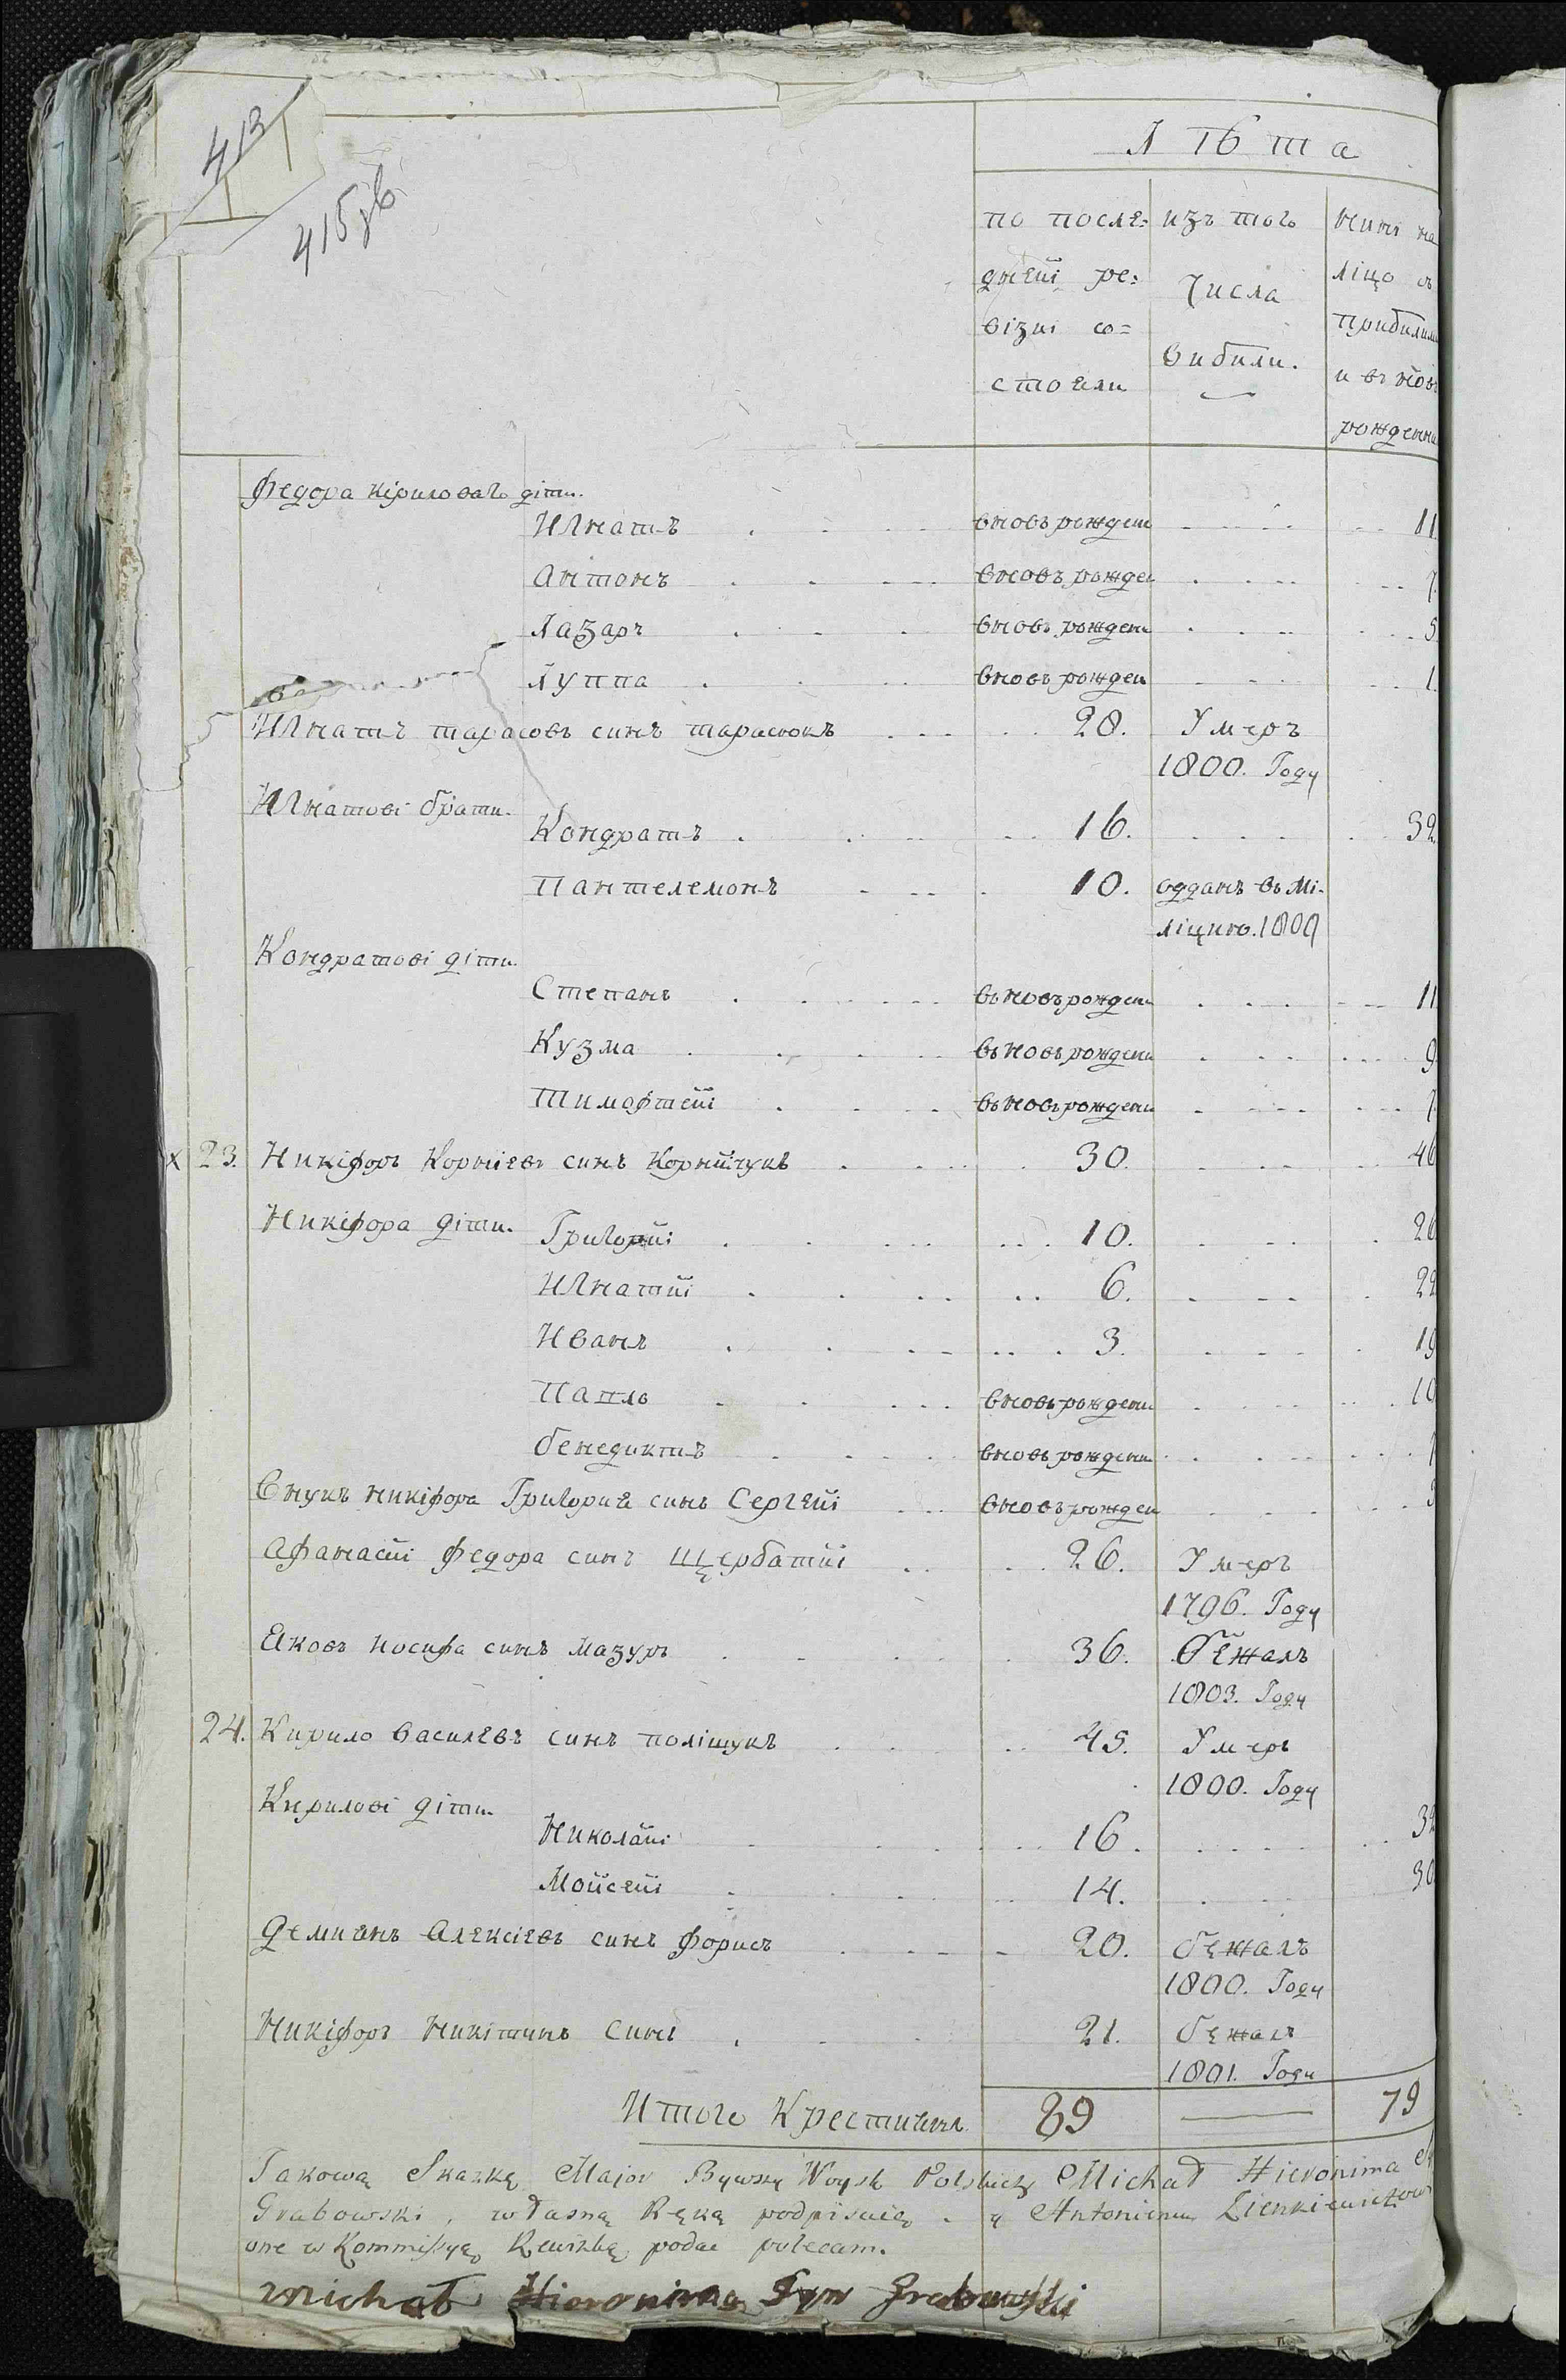 413
415зв
Лѣта
по после: изъ того нині на
днеиі ре: числа ліцо съ
візиі со= вибили. прибилими
стоели и въ новъ
рожденни
федора кірилова го діти.
Игнатъ вновъ рожден 11.
антонъ вновъ рожден 7.
Лазаръ вновъ рожден 5.
Луппа вновъ рожден 1.
Игнатъ тарасовъ синъ тарасюкъ 28. Умеръ
1800. Году
Игнатові брати.
Кондратъ 16. 32.
Пантелемонъ 10. одданъ въ мі-
ліцию. 1807
Кондратові діти
Степанъ въновъ рожден 11
Кузма въновъ рожден 9
Тимофтеиі въновъ рожден 7
х 23. Никіфоръ Корниевъ синъ Корниічукъ 30. 46
Никіфора діти. Григориі 10. 26
Игнатиі 6. 22
Иванъ 3. 19
Павлъ вновъ рожден 10
бенедиктъ вновъ рожден 1
Внукъ никіфора Григориа синъ Сергеиі вновъ рожден 3
афанасиі федора синъ щербатиі 26. Умеръ
1796. Году
Яковъ иосифа синъ мазуръ 36. бежалъ
1803. Году
24. Кирило василевъ синъ поліщукъ 45. Умеръ
1800. Году
Кирилові діти.
Николаиі 16. 32
Моисеиі 14. 30
демианъ алексіевъ синъ форисъ 20. бежалъ
1800. Году
Никіфоръ никітинъ синъ 21. бежал
1801. Году
Итого Крестианъ 89 — 79
Takową Skazkę Maior Bywszy Woysk Polskich Michał Hieronima
Grabowski, własną Ręką podpisuię. y Antoniemu Zienkiewiczow
one w Kommissyę Rewizką podać polecam.
Michał Hieronima Syn Grabowski